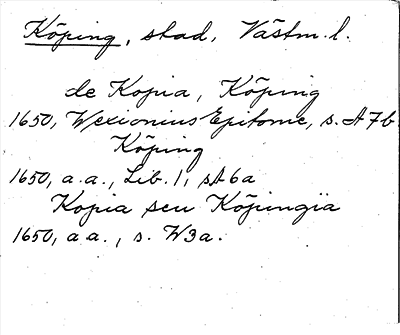 Köping, stad, Västm.l.
de Kopia, Köping
1650, Wexionius Epitome, s. A7b
Köping
1650, a.a., Lib. 1, sA6a
Kopia seu Köpingia
1650, a.a., s. W3a.